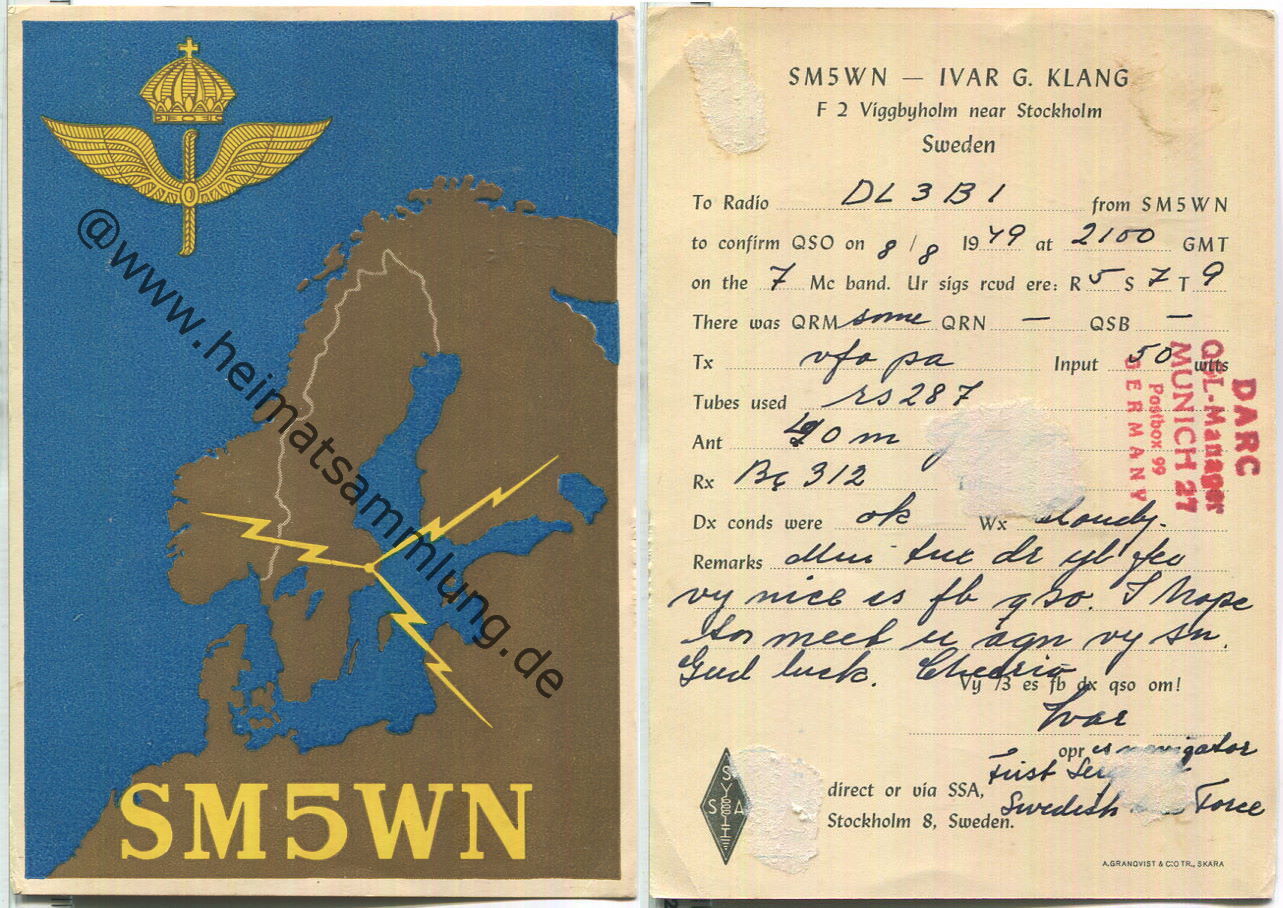 @www.heimatsammlung.de
SM5WN
SM5WN — IVAR G. KLANG
F 2 Viggbyholm near Stockholm
Sweden
To Radio DL3BI from SM5WN
to confirm QSO on 8/8 1949 at 2100 GMT
on the 7 Mc band. Ur sigs rcvd ere: R 5 S 7 T 9
There was QRM some QRN — QSB —
Tx vfo pa Input 50 wtts
Tubes used rs287
Ant 40 m
Rx Bc 312
Dx conds were ok Wx cloudy.
Remarks Mni tnx dr yl fer
vy nice es fb qso. I hope
tor meet u agn vy sn.
Gud luck. Cheerio
Vy 73 es fb dx qso om!
Ivar
opr es navigator
First
direct or via SSA,
Swedish Force
Stockholm 8, Sweden.
SSA
A. GRANQVIST & C:O TR., SKARA
DARC
QSL-Manager
MUNICH 27
Postbox 99
GERMANY